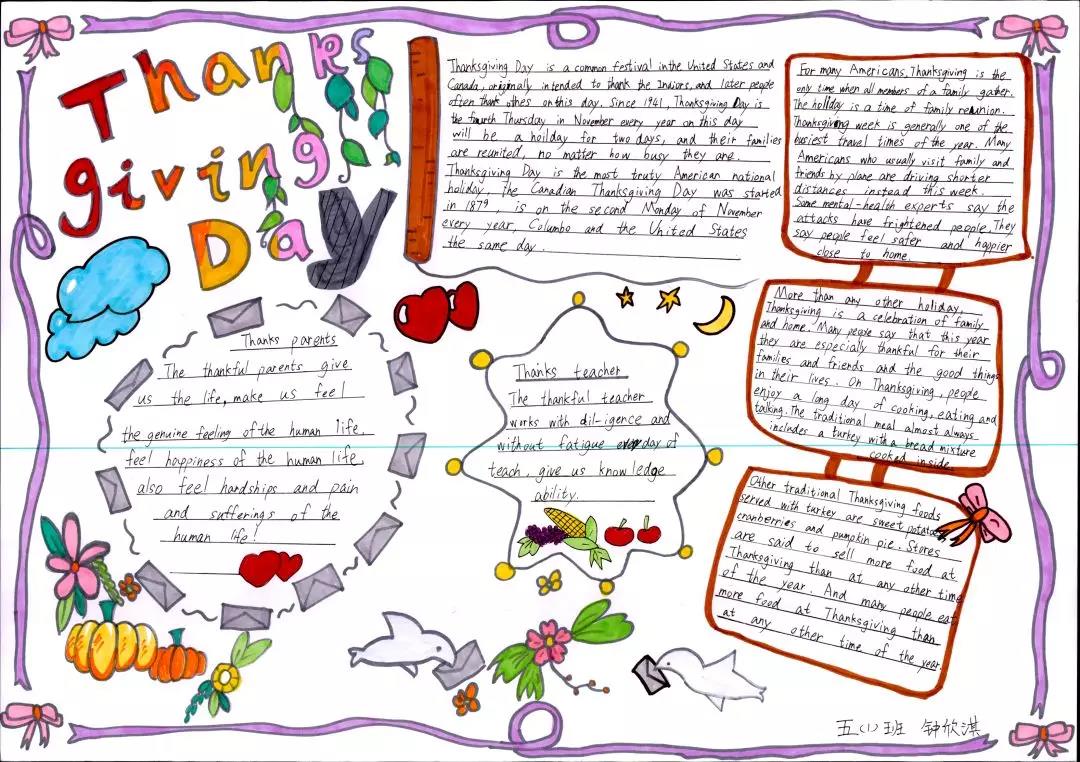 Thanks
giving
Day
Thanksgiving Day is a common festival in the United States and
Canada, originaly intended to thank the Indiors, and later people
often thank othes on this day. Since 1941, Thanksgiving Day is
the fourth Thursday in November every year on this day
will be a hoilday for two days, and their families
are reunited, no matter how busy they are.
Thanksgiving Day is the most truty American national
holiday, The Canadian Thanksgiving Day was started
in 1879, is on the second Monday of November
every year, Columbo and the United States
the same day
For many Americans, Thanksgiving is the
only time when all members of a family gather.
The holiday is a time of family reunion.
Thanksgiving week is generally one of the
busiest travel times of the year. Many
Americans who usually visit family and
friends by plane are driving shorter
distances instead this week.
Some mental-health experts say the
attacks have frightened people. They
say people feel safer and happier
close to home.
More than any other holiday,
Thanksgiving is a celebration of family
and home. Many people say that this year
they are especially thankful for their
families and friends and the good things
in their lives. On Thanksgiving, people
enjoy a long day of cooking, eating and
talking. The traditional meal almost always
includes a turkey with a bread mixture
cooked inside.
Other traditional Thanksgiving foods
served with turkey are sweet potatoes
cranberries and pumpkin pie. Stores
are said to sell more food at
Thanksgiving than at any other time
of the year. And many people eat
more feed at Thanksgiving than
at any other time of the year.
Thanks parents
The thankful parents give
us the life, make us feel
the genuine feeling of the human life,
feel happiness of the human life
also feel hardships and pain
and sufferings of the
human life!
Thanks teacher
The thankful teacher
works with dil-igence and
without fatigue day of
teach, give us knowledge
ability.
五(1)班 钟欣淇